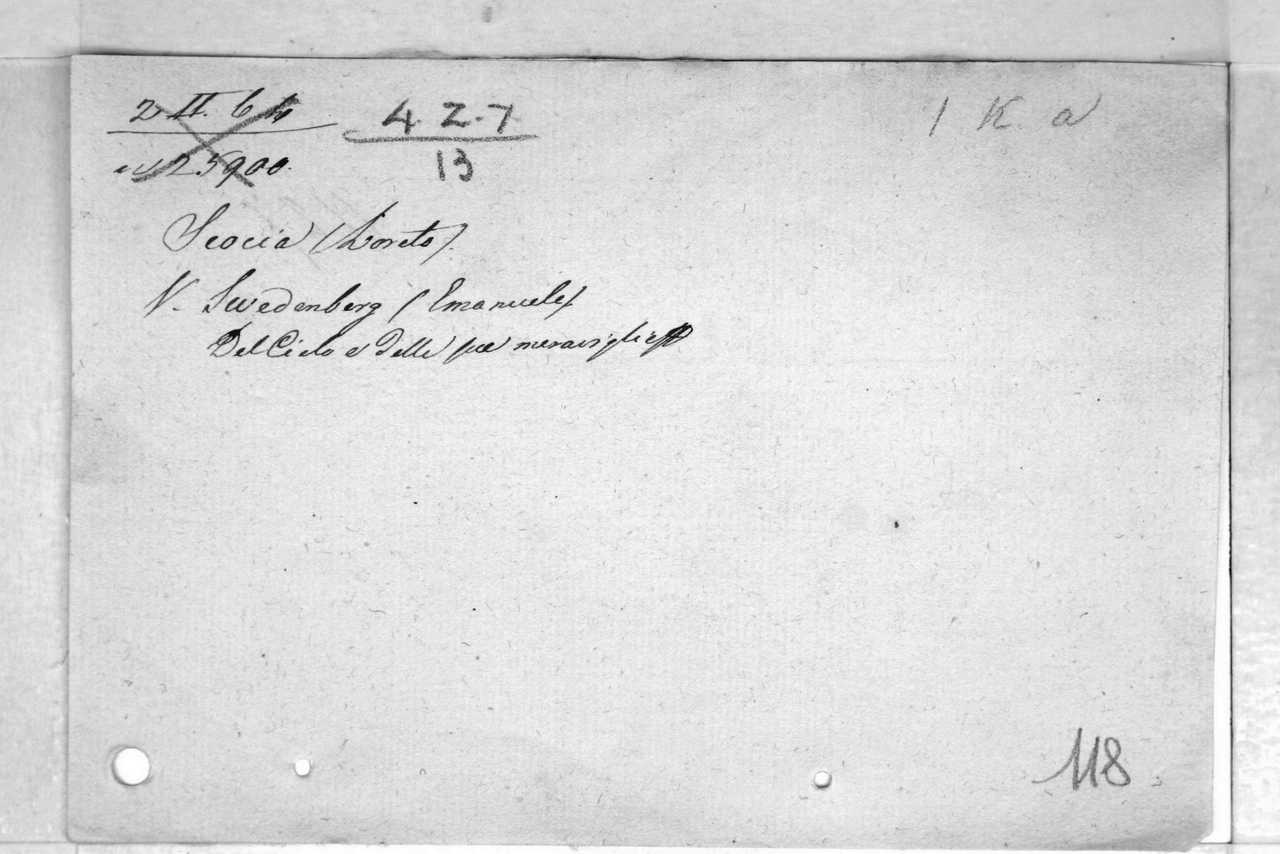 2 II. 64 4. Z. 7 1 K. a
25900. 13
Scocia (Loreto).
V. Swedenberg (Emanuele)
Del Cielo e delle sue meraviglie
118